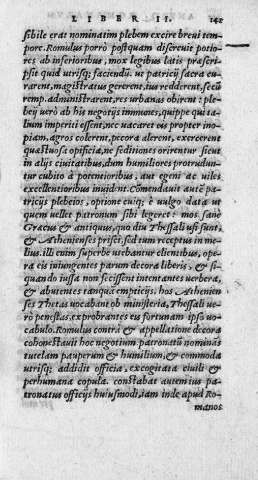 LIBER II.
sibile erat nominatim plebem excire breni tem-
pore. Romulus porrò postquam discreuit potio-
res ab inferioribus, mox legibus latis præscri-
psit quid utrisq; faciendũ. ut patricij sacra cu-
rarent, magistratus gererent, ius redderent, secũ
remp. administrarent, res urbanas obirent: ple-
beij uerò ab his negotijs immunes, quippe qui ta-
lium imperiti essent, nec uacaret eis propter ino-
piam, agros colerent, pecora alerent, exercerent
quæstuosa opificia, ne seditiones orirentur sicut
in alijs ciuitatibus, dum humiliores protrudun-
tur cubito à potentioribus, aut egeni ac uiles
excellentioribus inuidẽt. Cõmendauit autẽ pa-
tricijs plebeios, optione cuiq; è uulgo data ut
quem uellet patronum sibi legeret: mos sanè
Græcus & antiquus, quo diu Thessali usi sunt,
& Athenienses prisci, sed tum receptus in me-
lius. illi enim superbe utebantur clientibus, ope-
ra eis iniungentes parum decora liberis, & si-
quando iussa non fecissent intentantes uerbera,
& abutentes tanquã emptitijs. hos Athenien-
ses Thetas uocabant ob ministeria, Thessali ue-
rò penestas, exprobrantes eis fortunam ipso uo-
cabulo. Romulus contrà & appellatione decora
cohonestauit hoc negotium patronatũ nominãs
tutelam pauperum & humilium, & commoda
utrisq; addidit officia, excogitata ciuili &
perhumana copula. constabat autem ius pa-
tronatus officijs huiusmodi, iam inde apud Ro-
manos